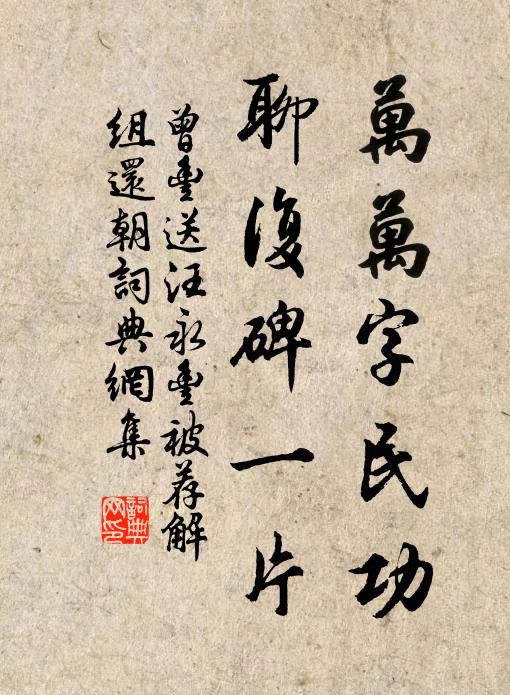 萬萬字民功
聊復碑一片
曾豐送汪永豐被荐解
組還朝詞典網集
詞典網印